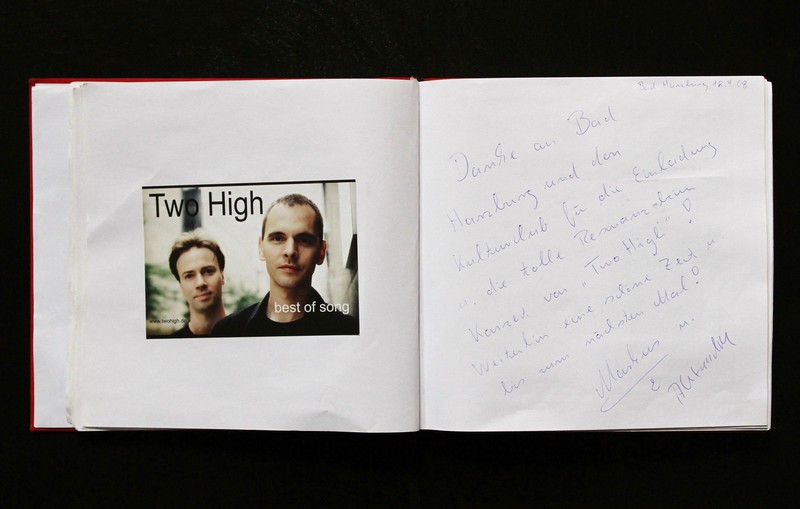 Two High
best of song
www.twohigh.de
Bad Harzburg, 18.4.08
Danke an Bad
Harzburg und den
Kulturclub für die Einladung
u. die tolle
Konzert von "Two High"!
Weiterhin eine schöne Zeit u.
bis zum nächsten Mal!
Markus u.